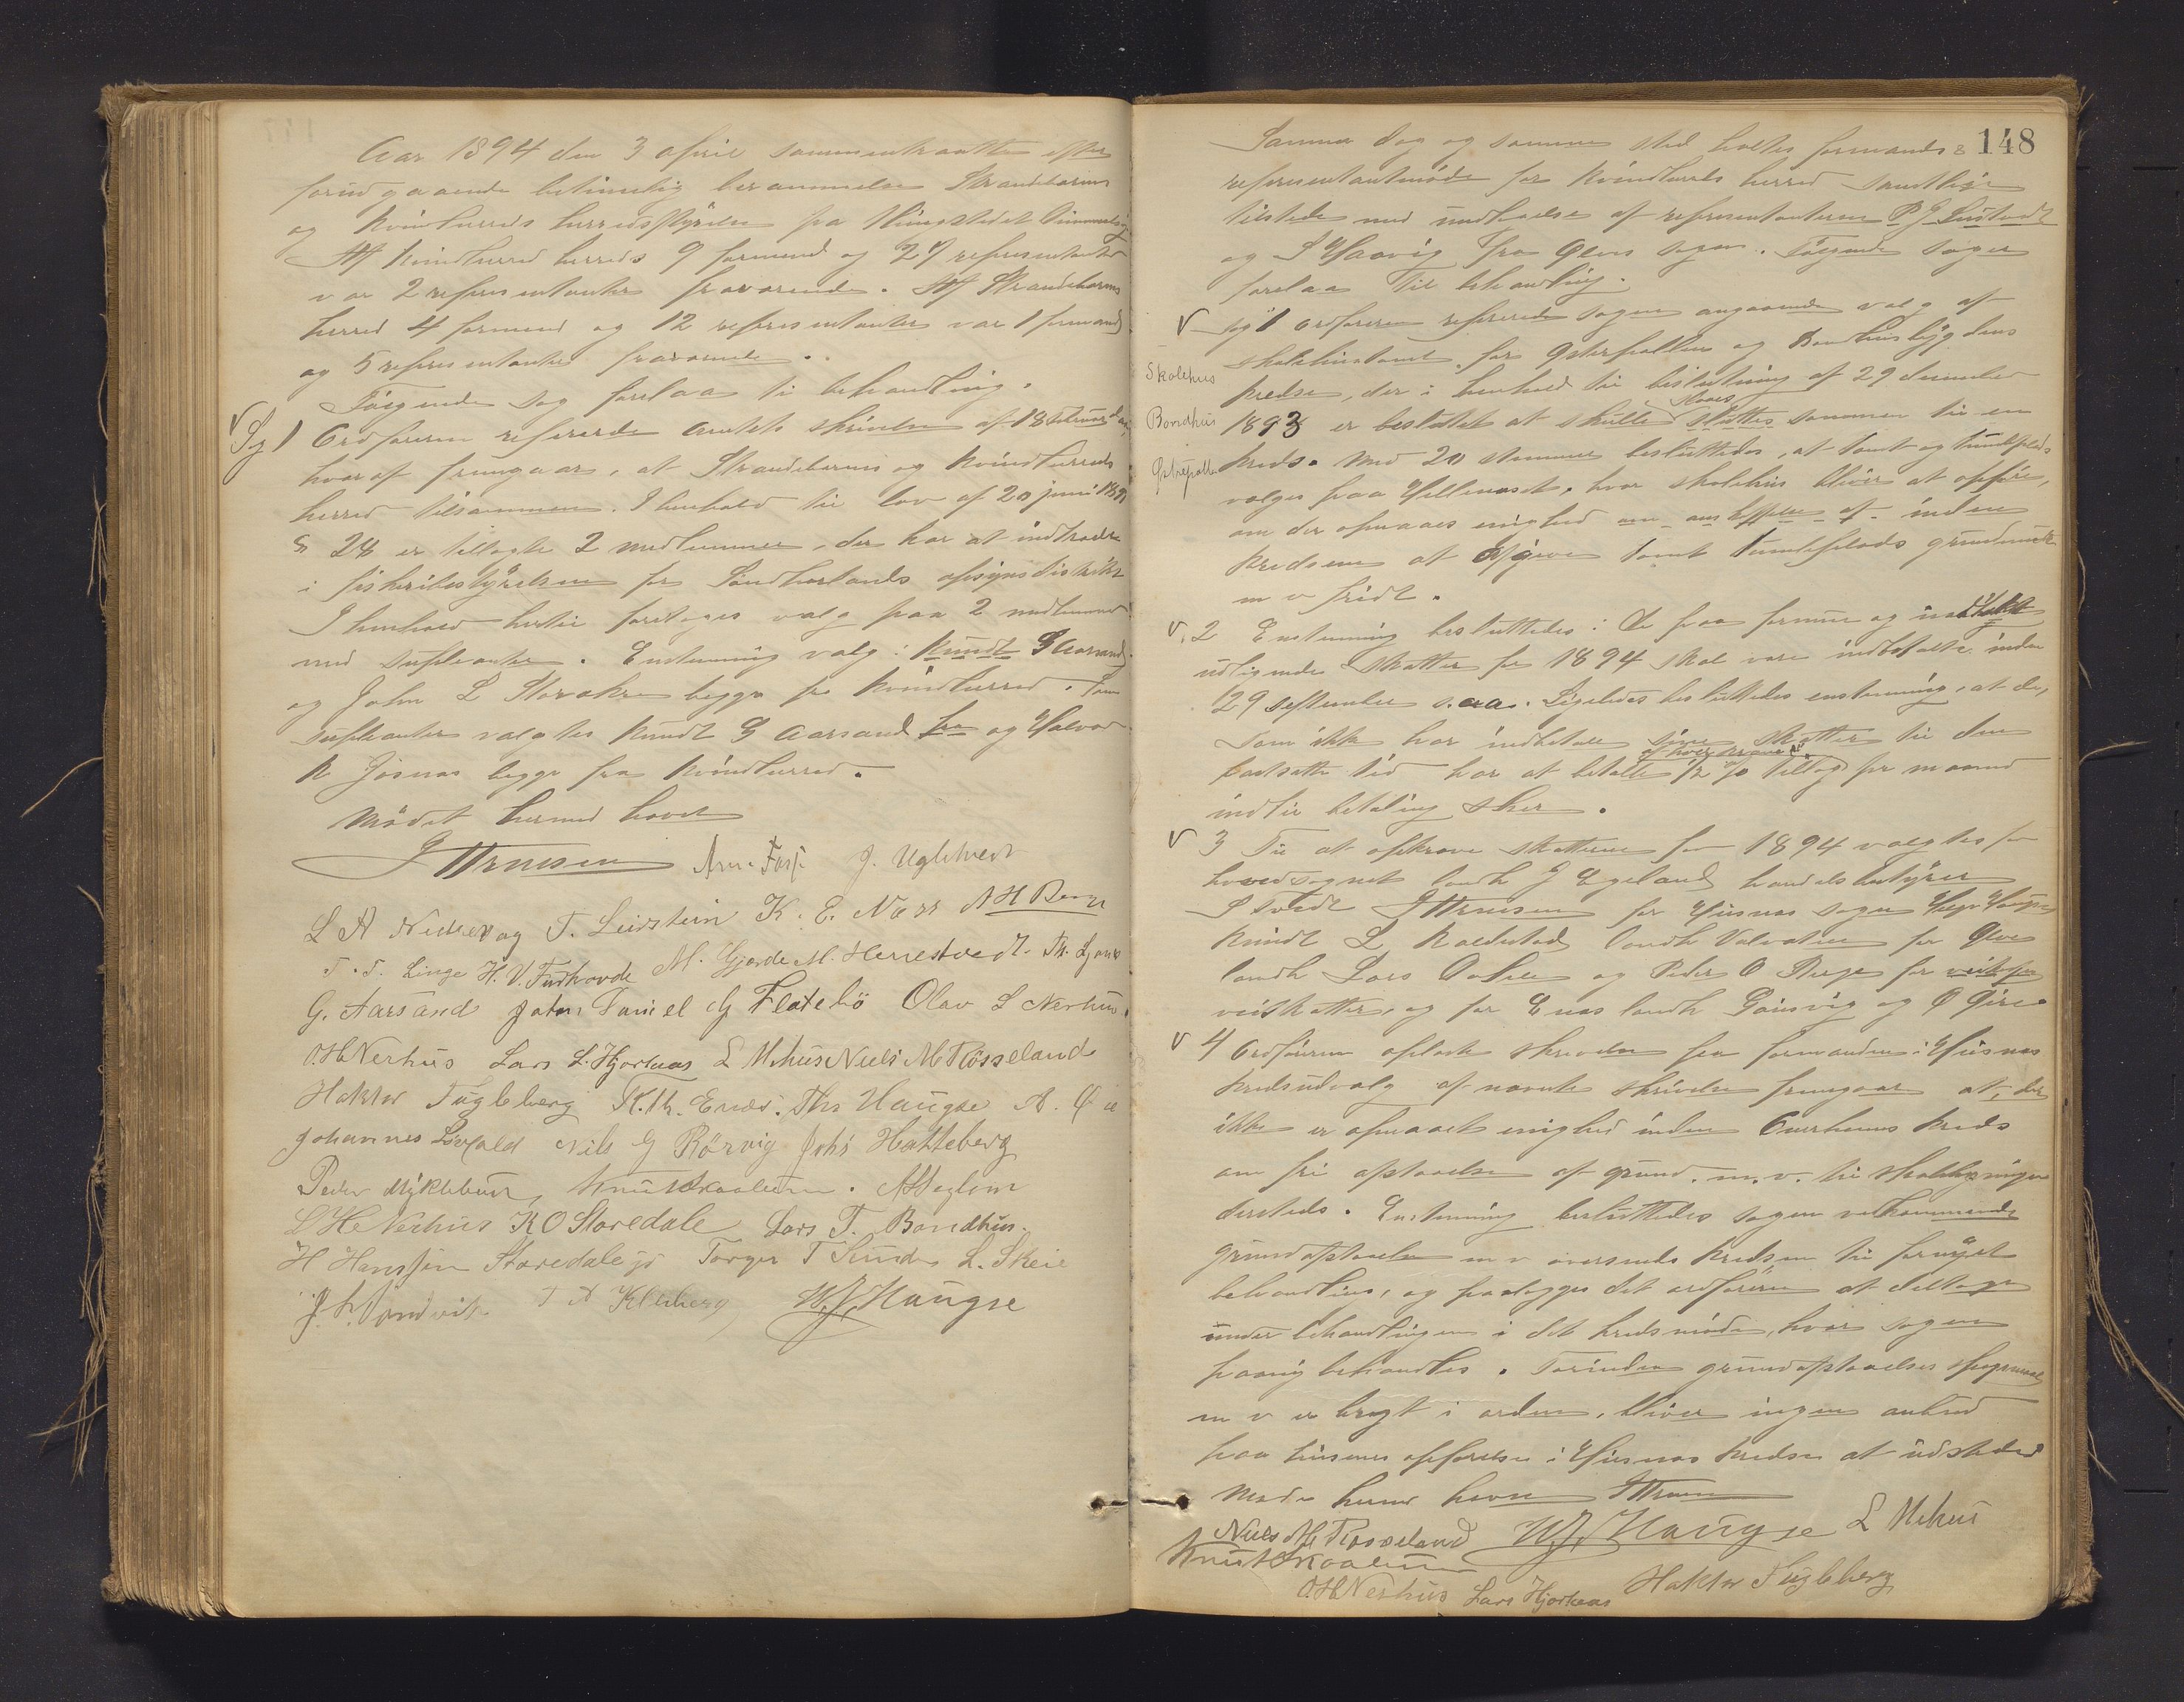 Aar 1894 den 3 april sammentraatte efter
forudgaaende betimelig berammelse Strandebarms
og Kvindherreds herredsstyrelse paa thingstedet
Af Kvindherred herreds 9 formænd og 27 repræsentanter
var 2 repræsentanter fraværende. Af Strandebarms
herred 4 formænd og 12 repræsentanter var 1 formand
og 5 repræsentanter fraværende.
Følgende sag forelaa til behandling.
Sag 1 Ordføreren refererede amtets skrivelse af 18 februar d.a.,
hvoraf fremgaar, at Strandebarms og Kvindherreds
herred tilsammen i henhold til lov af 20 juni 1891
§ 28 er tillagte 2 medlemmer, der har at indtræde
i fiskeribestyrelsen for Søndhorlands opsynsdistrikt
I henhold hertil foretoges valg paa 2 medlemmer
med supleanter. Enstemmig valg: Knudt G Aarsand
og John L Storakre begge fra Kvindherred. Som
supleanter valgtes Knudt G Aarsand fra og Halvor
K Josnas begge fra Kvindherred.
Mødet hermed hævet
J Hernesen J. Uglehvedt
L A Nedrevaag T. Leirstein K. E. Næss A H Berge
T. T. Linge H. V. Fudhovde M. Gjerde M. Herrestvedt.
G. Aarsand John Daniel G Flatebø Olav L Nerhus.
O.H. Nerhus Lars L. Hjortaas L Mehus Niels M Røsseland
Haktor Fugleberg K. Th. Enæs. Ths Haugse A.
Johannes Løvfald Nils G Rørvig Johs Hatteberg
Peder Myklebust, Knut Skaalum.
L H Nerhus K O Storedale Lars T. Bondhus.
H Hanssen Storedale jr Torger T Sunde L. Skeie
J. L. Sandvik T A Kleberg W. J. Haugse
148
Samme dag og samme sted holdtes formands &
repræsentantmøde for Kvindherreds herred samtlige
tilstede med undtagelse af repræsentanterne P J Sustvedt
og S Haavig fra Ølves sogn. Følgende sager
forelaa til behandling.
Sag 1 ordføreren refererede sagen angaaende valg af
skolehustomt for Østrepollen og Bondhusbygdens
Skolehus
Bondhus
Østrepollen
kredse, der i henhold til beslutning af 29 december
1893 er besluttet at skulle slaaes sluttes sammen til en
kreds. Med 20 stemmer besluttedes, at tomt og tumleplads
vælges paa Hellenæset, hvor skolehus bliver at opføre,
om der opnaaes enighed om anskaffelse af inden
kredsen at afgive tomt tumleplads grundmur
m v fridt.
2 Enstemmig besluttedes: De paa formue og indtægt
udlignede skatter for 1894 skal være indbetalte inden
29 september s.aa. Ligeledes besluttedes enstemmig, at de,
som ikke har indbetalt sine skatter til den
fastsatte tid har at betale 1/2 % tillæg pr maaned
indtil betaling sker.
3 Til at opkræve skatterne for 1894 valgtes for
hovedsognet landh J Egeland handelsbestyrer
S Tvedt J Hernesen for Husnæs sogn
Knudt L Kaldestad landh Valvatne for Ølve
landh Lars Aakre og Peder O Berge for
veiskatter, og for Enæs landh Gausvig og
4 Ordføreren oplæste skrivelse fra formanden i Husnæs
kredsudvalg af nævnte skrivelse fremgaar at, der
ikke er opnaaet enighed inden Omvikens kreds
om fri afstaaelse af grund. m.v. til skolebygningen
dersteds. Enstemmig besluttedes sagen vedkommende
grundafstaaelse m v oversendes kredsen til fornyet
behandling, og paalægges det ordføreren at deltage
under behandlingen i det kredsmøde, hvor sagen
paany behandles. Forinden grundafstaaelses spørgsmaal
m v er bragt i orden, bliver ingen anbud
paa husenes opførelse i Husnæs kredse at udstede
Mødet hermed hævet J Hernesen
Niels M Røsseland W. J. Haugse L Mehus
Knut Skaalum
O H Nerhus Lars Hjortaas Haktor Fugleberg